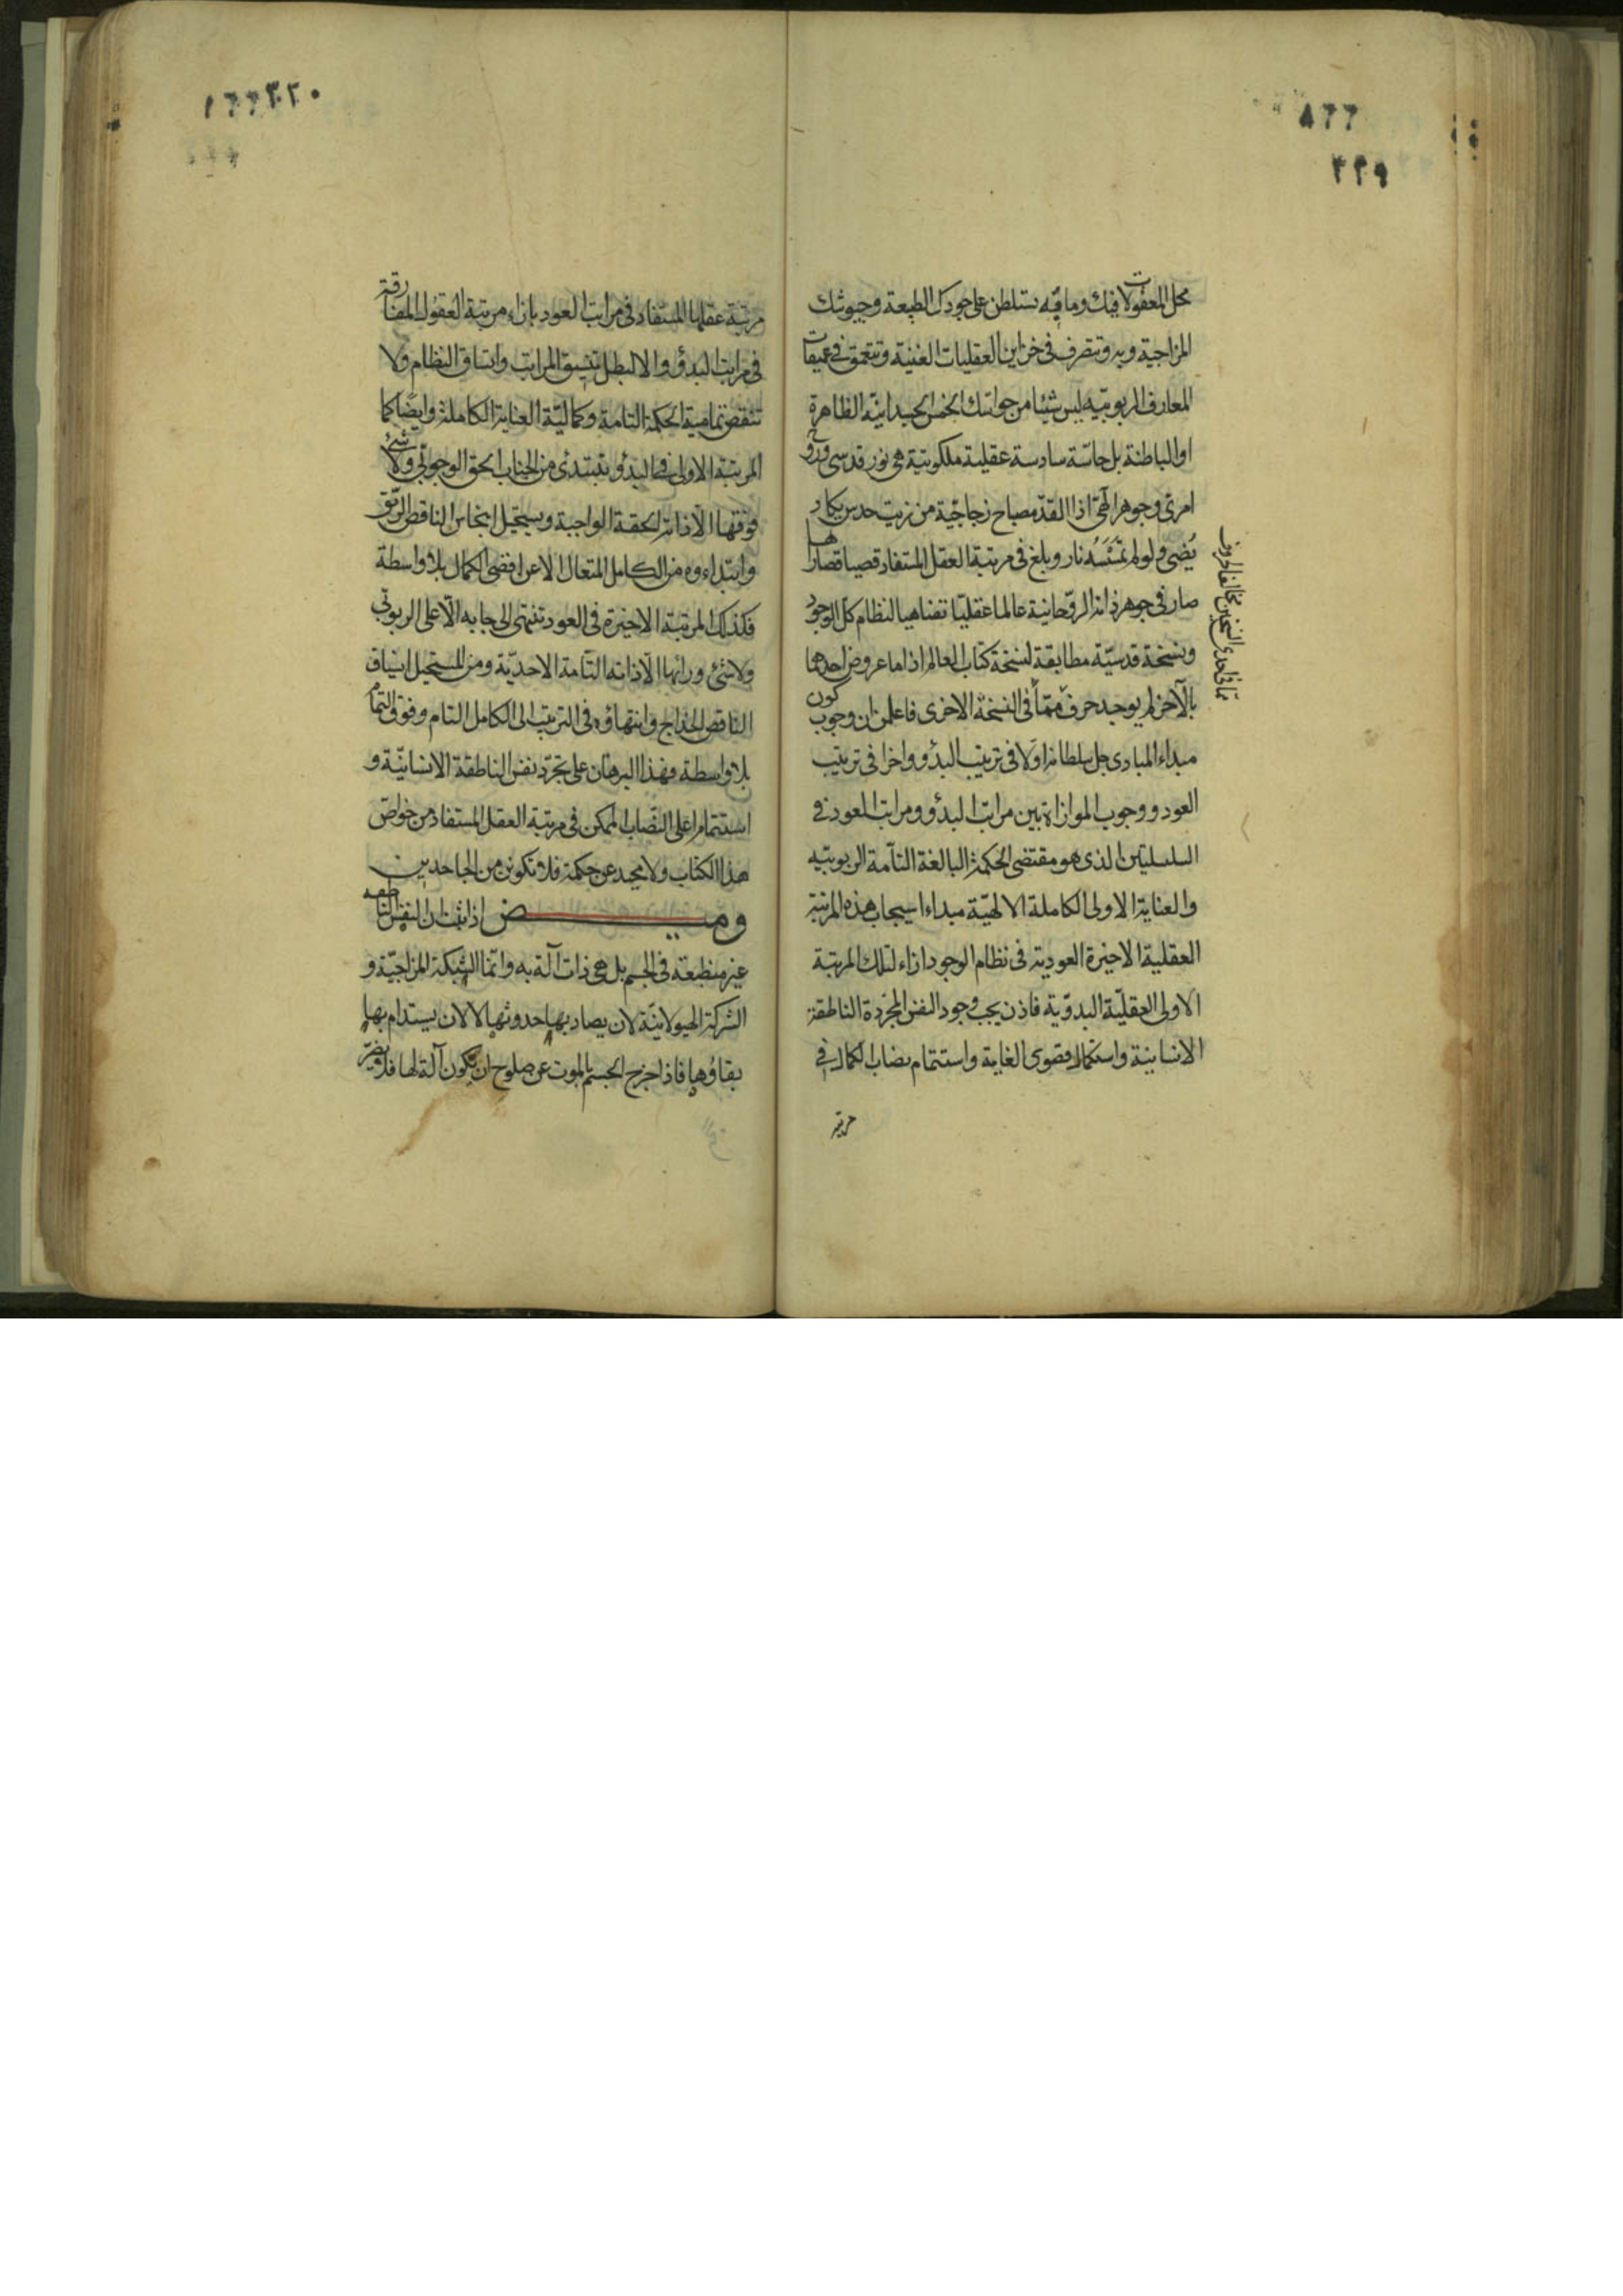 ٨٢٢
٢٢٩
محل المعقولات فيك وما فيه تسلطن على جودك الطبيعة وجيوشك
المزاجية وبه وتتصرف فى خزاين العقليات الغنية وتتعمق فى عميقات
المعارف الربوبيّة ليس شيئا من حواسك الخمس الجسدانيّة الظاهرة
او الباطنة بل حاسّة سادسة عقلية ملكوتية هى نور قدسى وذو
امرى وجوهر الٓهى اذا القدّ مصباح زجاجيّة من زيت حدس يكاد
يُضئ ولو لم تمْسَسْه نار وبلغ فى مرتبة العقل المستفاد قصيا قصارا ها
صار فى جوهر ذاته الروحانية عالما عقليّا مضاهيا لنظام كل الوجود
ونسخة قدسيّة مطابقة لنسخة كتاب العالم اذا ما عروض احدهما
بالآخر لم يوجد حرف ممّا فى النسخة الاخرى فاعلمن ان وجوب كون
مبداء المبادى جل سلطانه اولا فى ترتيب البدؤ واخرا فى ترتيب
العود ووجوب الموازاة بين مراتب البدؤ ومراتب العود فى
السلسلتين الذى هو مقتضى الحكمة البالغة التآمة الربوبيّه
والعناية الاولى الكاملة الالهيّة مبداء ايجاب هذه المرتبة
العقلية الاخيرة العودية فى نظام الوجود ازاء لتلك المرتبة
الاولى العقليّة البدوّية فاذن يجب وجود النفس المجرّدة الناطقة
الانسانية واستكمال قصوى الغاية واستتمام نصاب الكمال فى
مرتبة
٢٢٠
مرتبة عقلها المستفاد فى مراتب العود بازاء مرتبة العقول المفارقة
فى مراتب البدؤ والا لبطل تنسيق المراتب واتساق النظام ولا
تنقص تمامية الحكمة التامة وكماليّة العناية الكاملة وايضا كما
المرتبة الاولى فى البدؤ تبتدئ من الجناب الحق الوجوبى ولا شئ
فوقها الّا ذاته الحقة الواجبة ويستحيل انبجاس الناقص الرتق
وابتداءوه من الكامل المتعال الا عن اقصى الكمال بلا واسطة
فكذلك المرتبة الاخيرة فى العود تنتهى الى جنابه الّا على الربوبى
ولا شئ ورائها الّا ذاته التآمة الاحديّة ومن المستحيل انسياق
الناقص الخداج وانتهاؤه فى الترتيب الى الكامل التام وفوق التمام
بلا واسطة فهذا البرهان على تجرّد نفس الناطقة الانسانيّة و
استتمام اعلى النصاب الممكن فى مرتبة العقل المستفاد من خواصّ
هذا الكتاب ولا محيد عن حكمة فلا تكونن من الجاحدين
وميـــض اذا ثبت ان النفس الناطقه
غير منطبعة فى الجسم بل هى ذات آلة به وانما الشبكة المزاجيّة و
الشركة الهيولانيّة لان يصاد بها حدوثها لا لان يستدام بها
بقاؤها فاذا خرج الجسم بالموت عن صلوح ان يكون آلة لها فلا يضرّ